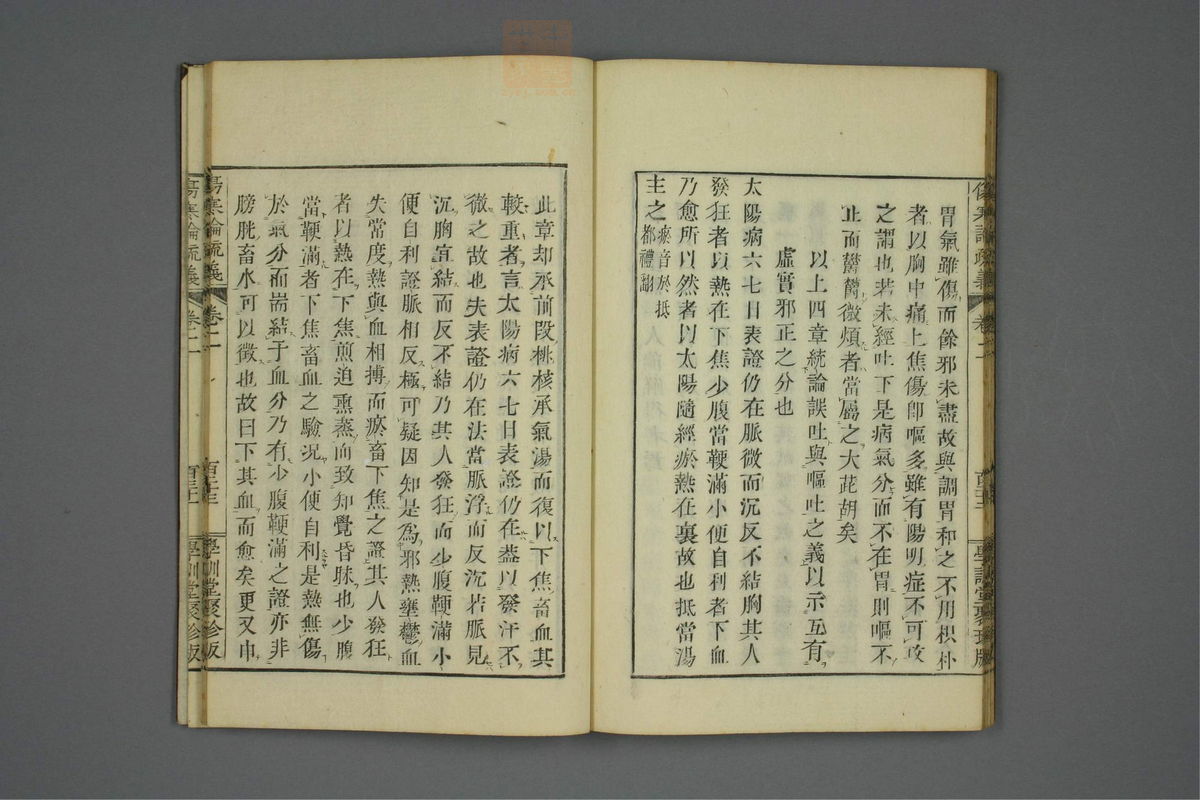 胃氣雖傷而餘邪未盡故與調胃和之不用枳朴
者以胸中痛上焦傷卽嘔多雖有陽明症不可攻
之謂也若未經吐下是病氣分而不在胃則嘔不
止而鬱鬱微煩者當屬之大茈胡矣
以上四章統論誤吐與嘔吐之義以示互有
虛實邪正之分也
太陽病六七日表證仍在脈微而沉反不結胸其人
發狂者以熱在下焦少腹當鞕滿小便自利者下血
乃愈所以然者以太陽隨經瘀熱在裏故也抵當湯
主之瘀音於抵
都禮翻
此章却承前段桃核承氣湯而復以下焦畜血其
較重者言太陽病六七日表證仍在葢以發汗不
徹之故也夫表證仍在法當脈浮而反沉若脈見
沉胸宜結而反不結乃其人發狂而少腹鞕滿小
便自利證脈相反極可疑因知是爲邪熱壅鬱血
失常度熱與血相搏而瘀畜下焦之證其人發狂
者以熱在下焦煎迫熏蒸而致知覺昏昧也少腹
當鞕滿者下焦畜血之驗況小便自利是熱無傷
於氣分而耑結于血分乃有少腹鞕滿之證亦非
膀胱畜水可以徵也故曰下其血而愈矣更又申
傷寒論疏義
卷二
百三十三
學訓堂聚珍版